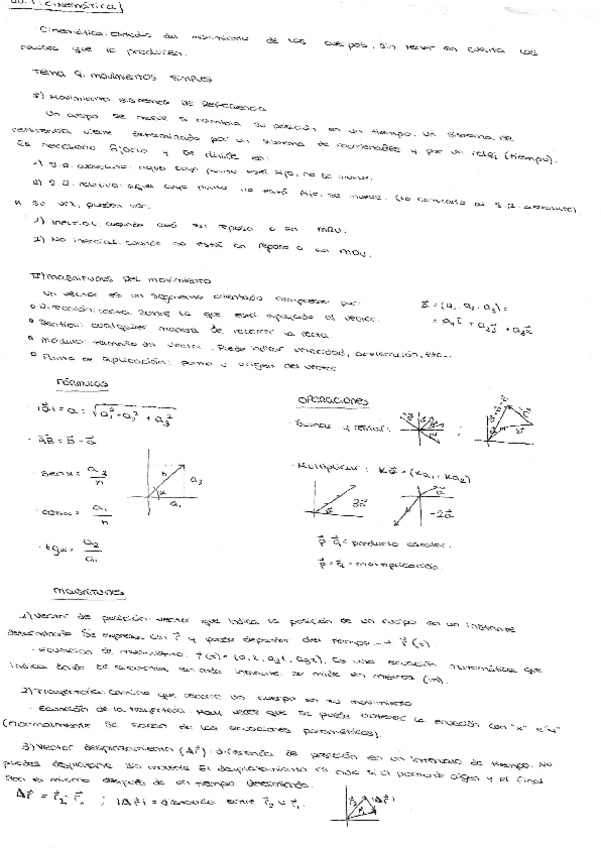 Cinemática
Cinemática: estudio del movimiento de los cuerpos, sin tener en cuenta las
causas que lo producen.
Tema 9. movimientos simples
I) Movimiento. Sistemas de Referencia
Un cuerpo se mueve si cambia su posición en un tiempo. Un sistema de
referencia viene determinado por un sistema de coordenadas y por un reloj (tiempo).
Es necesario fijarlo y se divide en:
1) S.R. absoluto: aquel cuyo punto está fijo, no se mueve.
2) S.R. relativo: aquel cuyo punto no está fijo, se mueve. (lo contrario al S.R. absoluto)
A su vez, pueden ser:
1) Inercial: cuando está en reposo o en MRU.
2) No inercial: cuando no está en reposo o en MRU.
II) Magnitudes del movimiento
Un vector es un segmento orientado compuesto por:
Dirección: recta sobre la que está apoyado el vector.
Sentido: cualquier manera de recorrer la recta.
Módulo: tamaño del vector. Puede indicar velocidad, aceleración, etc...
Punto de aplicación: punto u origen del vector
a⃗ = (a₁, a₂, a₃) =
= a₁i⃗ + a₂j⃗ + a₃k⃗
Fórmulas
|a⃗| = a = √a₁² + a₂² + a₃²
AB⃗ = b⃗ - a⃗
sen α = a₂/n
cos α = a₁/n
tg α = a₂/a₁
Operaciones
Sumar y restar:
Multiplicar: ka⃗ = (ka₁, ka₂)
3a⃗
-2a⃗
p⃗ · q⃗ = producto escalar.
p⃗ × q⃗ = multiplicación.
Magnitudes
1) Vector de posición: vector que indica la posición de un cuerpo en un instante
determinado. Se expresa con r⃗ y puede depender del tiempo → r⃗(t)
Ecuación de movimiento: r⃗(t) = (a₁t, a₂t, a₃t). Es una ecuación matemática que
indica donde se encuentra en cada instante. se mide en metros (m).
2) Trayectoria: camino que recorre un cuerpo en su movimiento
Ecuación de la trayectoria: Hay veces que se puede obtener la ecuación con "x" e "y"
(normalmente se sacan de las ecuaciones paramétricas).
3) Vector desplazamiento (Δr⃗): diferencia de posición en un intervalo de tiempo. No
puedes desplazarte sin moverte. El desplazamiento es nulo si el punto de origen y el final
son el mismo después de un tiempo determinado.
Δr⃗ = r⃗₂ - r⃗₁ ; |Δr⃗| = distancia entre r⃗₂ y r⃗₁.